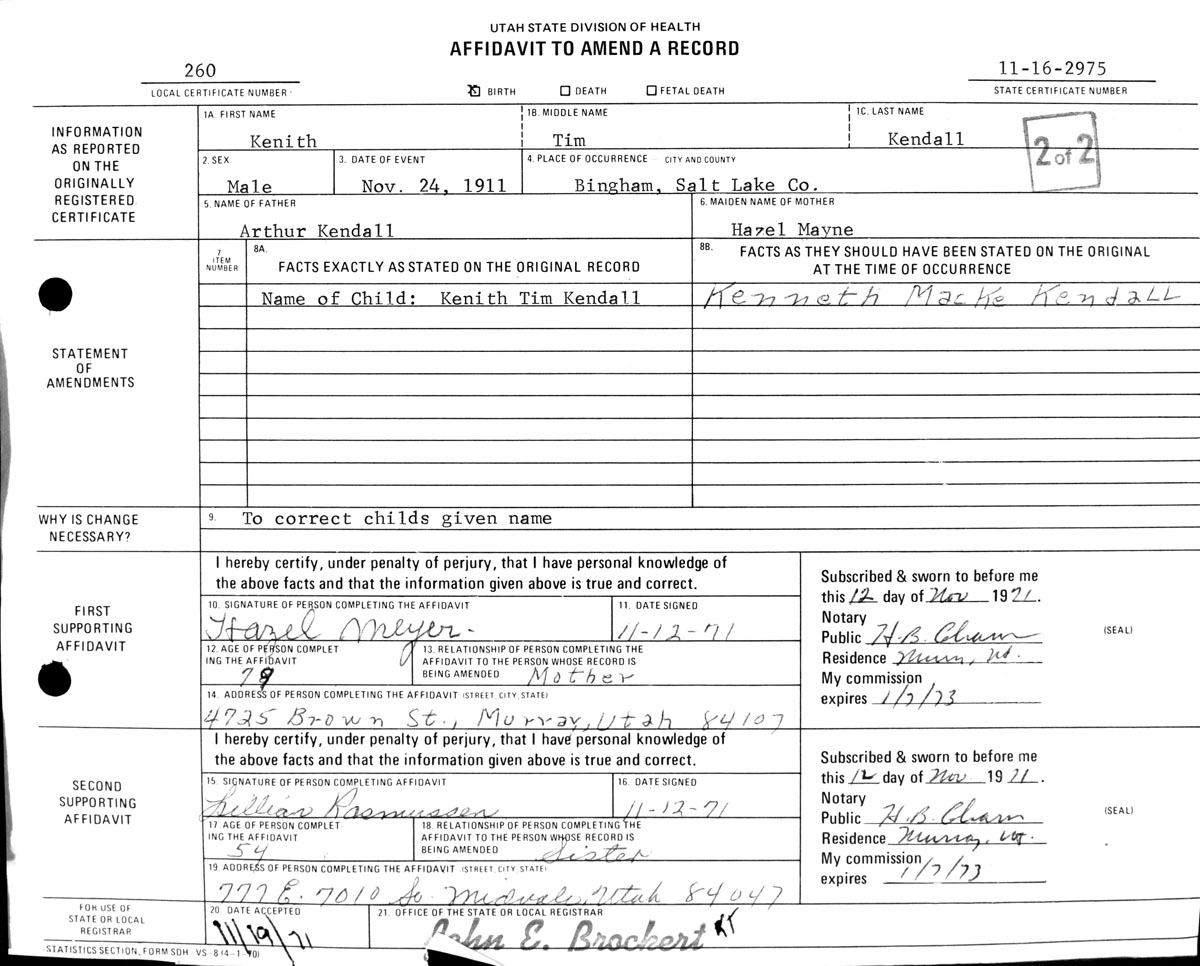 UTAH STATE DIVISION OF HEALTH
AFFIDAVIT TO AMEND A RECORD
260
LOCAL CERTIFICATE NUMBER
☒ BIRTH ☐ DEATH ☐ FETAL DEATH
11-16-2975
STATE CERTIFICATE NUMBER
INFORMATION
AS REPORTED
ON THE
ORIGINALLY
REGISTERED
CERTIFICATE
1A. FIRST NAME
Kenith
1B. MIDDLE NAME
Tim
1C. LAST NAME
Kendall
2 of 2
2. SEX
Male
3. DATE OF EVENT
Nov. 24, 1911
4. PLACE OF OCCURRENCE - CITY AND COUNTY
Bingham, Salt Lake Co.
5. NAME OF FATHER
Arthur Kendall
6. MAIDEN NAME OF MOTHER
Hazel Mayne
STATEMENT
OF
AMENDMENTS
7
ITEM
NUMBER
8A.
FACTS EXACTLY AS STATED ON THE ORIGINAL RECORD
8B. FACTS AS THEY SHOULD HAVE BEEN STATED ON THE ORIGINAL
AT THE TIME OF OCCURRENCE
Name of Child: Kenith Tim Kendall
Kenneth Macke Kendall
WHY IS CHANGE
NECESSARY?
9. To correct childs given name
FIRST
SUPPORTING
AFFIDAVIT
I hereby certify, under penalty of perjury, that I have personal knowledge of
the above facts and that the information given above is true and correct.
10. SIGNATURE OF PERSON COMPLETING THE AFFIDAVIT
Hazel Meyer
11. DATE SIGNED
11-12-71
12. AGE OF PERSON COMPLET
ING THE AFFIDAVIT
13. RELATIONSHIP OF PERSON COMPLETING THE
AFFIDAVIT TO THE PERSON WHOSE RECORD IS
BEING AMENDED Mother
14. ADDRESS OF PERSON COMPLETING THE AFFIDAVIT (STREET, CITY, STATE)
4725 Brown St., Murray, Utah 84107
Subscribed & sworn to before me
this 12 day of Nov 1971.
Notary
Public H.B.
Residence
My commission
expires 1/7/73
(SEAL)
SECOND
SUPPORTING
AFFIDAVIT
I hereby certify, under penalty of perjury, that I have personal knowledge of
the above facts and that the information given above is true and correct.
15. SIGNATURE OF PERSON COMPLETING AFFIDAVIT
Lillian Rasmussen
16. DATE SIGNED
11-12-71
17. AGE OF PERSON COMPLET
ING THE AFFIDAVIT
54
18. RELATIONSHIP OF PERSON COMPLETING THE
AFFIDAVIT TO THE PERSON WHOSE RECORD IS
BEING AMENDED Sister
19. ADDRESS OF PERSON COMPLETING THE AFFIDAVIT (STREET, CITY, STATE)
777 E. 7010 So. Midvale, Utah 84047
Subscribed & sworn to before me
this 12 day of Nov 1971.
Notary
Public H.B.
Residence Murray, Ut.
My commission
expires 1/7/73
(SEAL)
FOR USE OF
STATE OR LOCAL
REGISTRAR
20. DATE ACCEPTED
11/19/71
21. OFFICE OF THE STATE OR LOCAL REGISTRAR
John E. Brockert
STATISTICS SECTION, FORM SDH - VS - 8 (4-1-70)